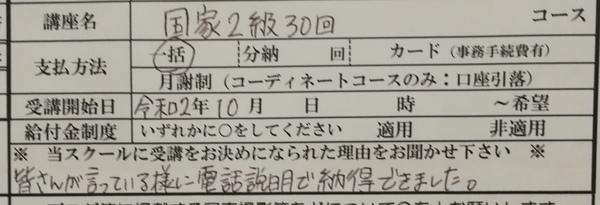 講座名 国家2級30回 コース
支払方法 一括 分納 回 カード(事務手続費有)
月謝制(コーディネートコースのみ:口座引落)
受講開始日 令和2年10月 日 時 ~希望
給付金制度 いずれかに○をしてください 適用 非適用
※ 当スクールに受講をお決めになられた理由をお聞かせ下さい ※
皆さんが言っている様に電話説明で納得できました。